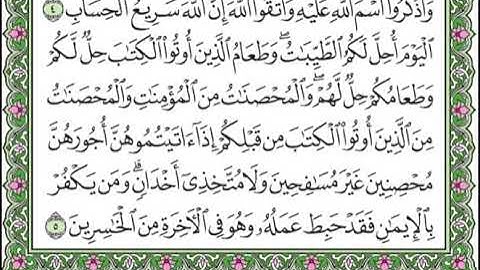 وَاذْكُرُوا اسْمَ اللَّهِ عَلَيْهِ وَاتَّقُوا اللَّهَ إِنَّ اللَّهَ سَرِيعُ الْحِسَابِ ٤
الْيَوْمَ أُحِلَّ لَكُمُ الطَّيِّبَاتُ وَطَعَامُ الَّذِينَ أُوتُوا الْكِتَابَ حِلٌّ لَّكُمْ
وَطَعَامُكُمْ حِلٌّ لَّهُمْ وَالْمُحْصَنَاتُ مِنَ الْمُؤْمِنَاتِ وَالْمُحْصَنَاتُ
مِنَ الَّذِينَ أُوتُوا الْكِتَابَ مِن قَبْلِكُمْ إِذَا ءَاتَيْتُمُوهُنَّ أُجُورَهُنَّ
مُحْصِنِينَ غَيْرَ مُسَافِحِينَ وَلَا مُتَّخِذِي أَخْدَانٍ وَمَن يَكْفُرْ
بِالْإِيمَانِ فَقَدْ حَبِطَ عَمَلُهُ وَهُوَ فِي الْآخِرَةِ مِنَ الْخَاسِرِينَ ٥